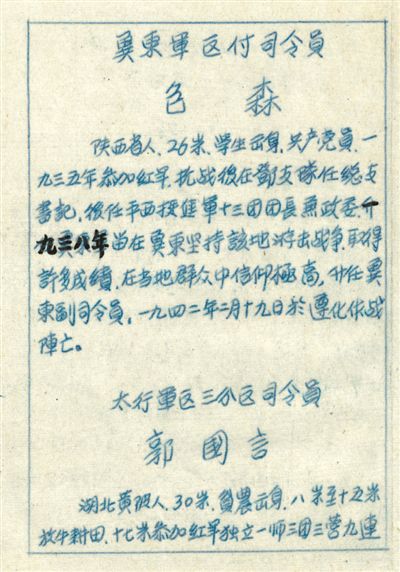 冀東軍区付司令員
包 森
陕西省人、26岁、学生出身、共产党員、一
九三五年参加紅軍、抗战後在鄧支隊任総支
書記，後任平西挺進軍十三团团長兼政委、一
九三八年当在冀東坚持該地游击战争、取得
許多成績、在当地群众中信仰極高，升任冀
東副司令員，一九四二年二月十九日於遵化作战
陣亡。
太行軍区三分区司令員
郭國言
湖北黄陂人、30岁、貧農出身、八岁至十五岁
放牛耕田、十七岁参加紅軍独立一师三团三营九連